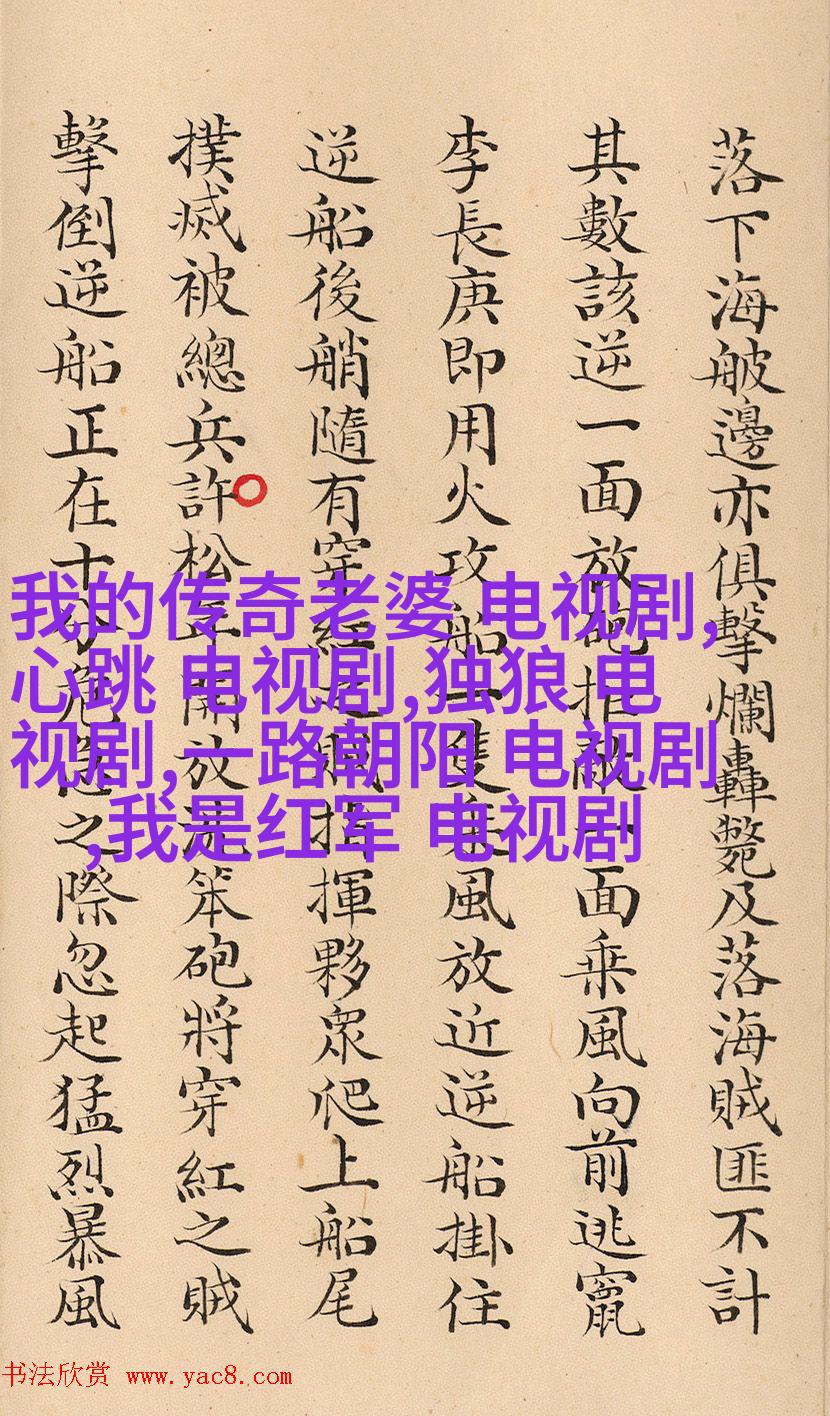 落下海邊亦俱擊爛轟斃及落海賊匪不計
其數該逆一面放砲拒敵一面乘風向前逃竄
李長庚即用火攻船一隻乘風放近逆船掛住
逆船後艄隨有穿紅之賊指揮夥眾爬上船尾
撲滅被總兵許松年開放笨砲將穿紅之賊
擊倒逆船正在十分危急之際忽起猛烈暴風
我的传奇老婆 电视剧,
心跳 电视剧,独狼 电
视剧,一路朝阳 电视剧
,我是红军 电视剧
书法欣赏 www.yac8.com